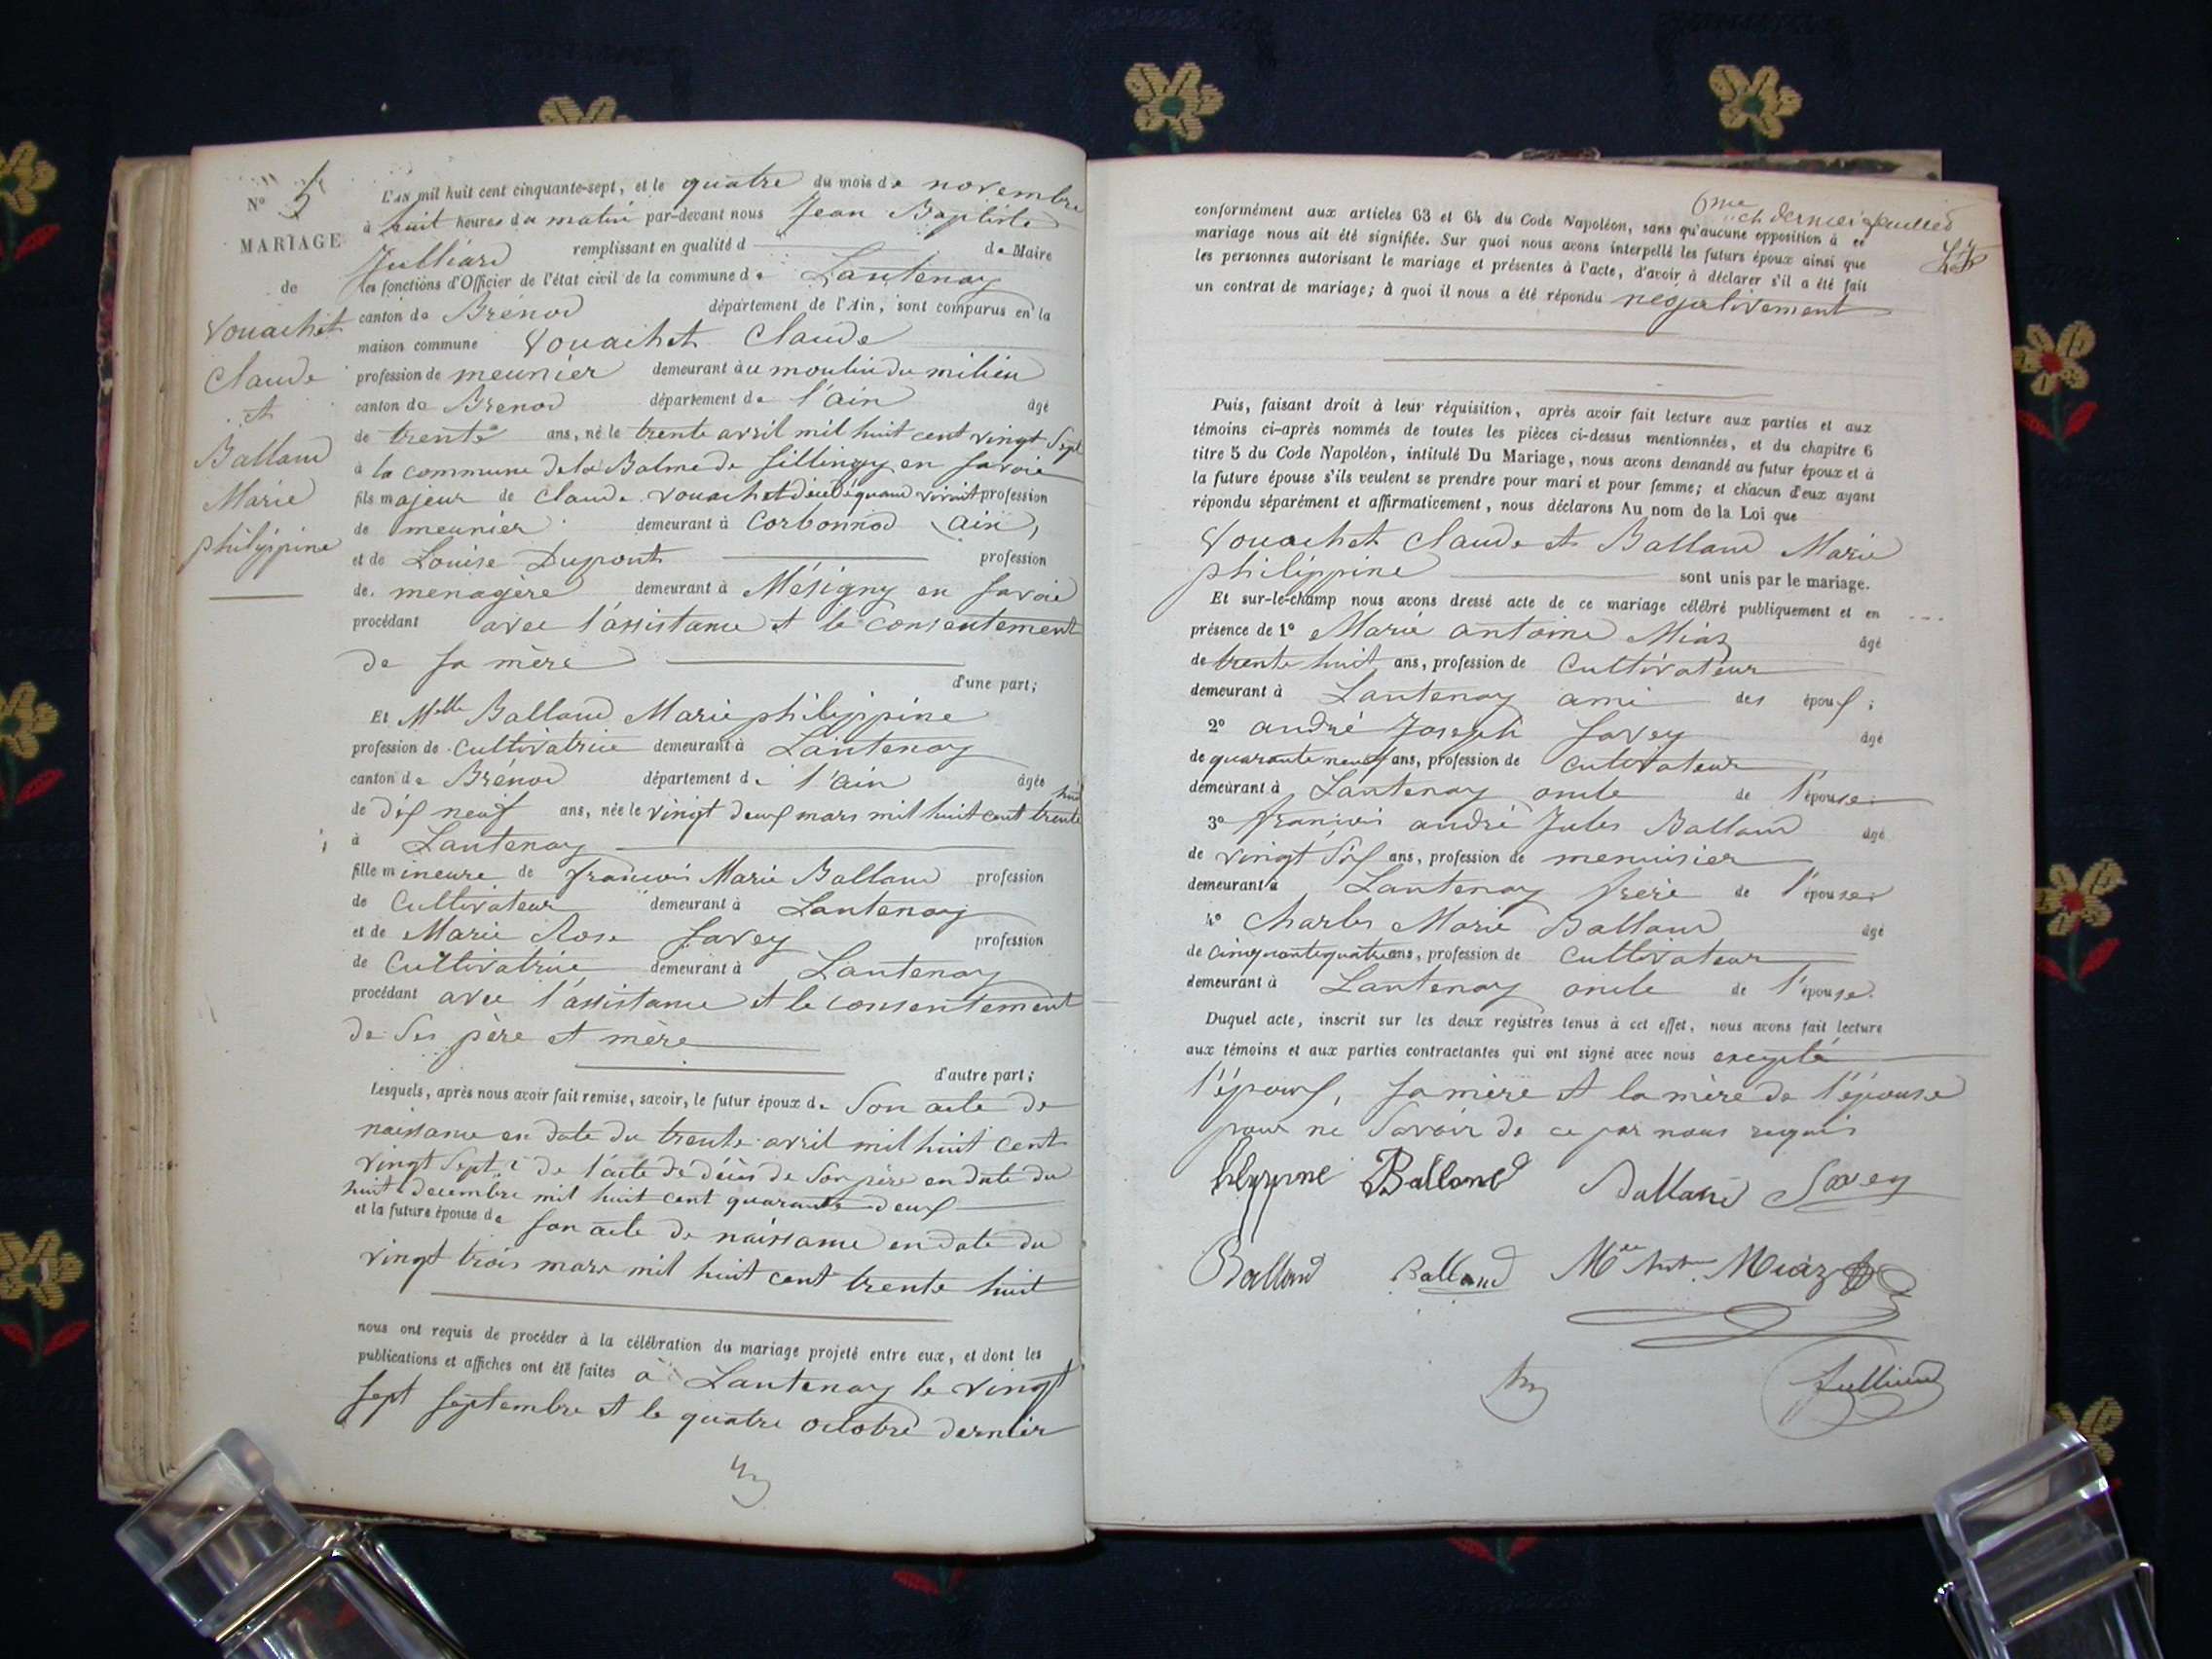 N° 5
MARIAGE
de
Vouachet
Claude
et
Balland
Marie
philippine
L'AN mil huit cent cinquante-sept, et le quatre du mois de novembre
à huit heures du matin par-devant nous Jean Baptiste
Julliard remplissant en qualité d de Maire
les fonctions d'Officier de l'état civil de la commune de Lantenay
canton de Brénod département de l'Ain, sont comparus en la
maison commune Vouachet Claude
profession de meunier demeurant au moulin du milieu
canton de Brenod département de l'ain âgé
de trente ans, né le trente avril mil huit cent vingt sept
à la commune de la Balme de Sillingy en Savoie
fils majeur de Claude Vouachet décédé quand vivait profession
de meunier demeurant à Corbonnod (ain)
et de Louise Dupont profession
de menagère demeurant à Mésigny en Savoie
procédant avec l'assistance et le consentement
de sa mère
d'une part;
Et Melle Balland Marie philippine
profession de Cultivatrice demeurant à Lantenay
canton de Brénod département de l'ain âgée
de dix neuf ans, née le vingt deux mars mil huit cent trente huit
à Lantenay
fille mineure de francois Marie Balland profession
de Cultivateur demeurant à Lantenay
et de Marie Rose Savey profession
de Cultivatrice demeurant à Lantenay
procédant avec l'assistance et le consentement
de ses père et mère
d'autre part;
Lesquels, après nous avoir fait remise, savoir, le futur époux de Son acte de
naissance en date du trente avril mil huit cent
vingt sept, & de l'acte de décès de Son père en date du
huit decembre mil huit cent quarante deux
et la future épouse de son acte de naissance en date du
vingt trois mars mil huit cent trente huit
nous ont requis de procéder à la célébration du mariage projeté entre eux, et dont les
publications et affiches ont été faites à Lantenay le vingt
sept septembre et le quatre octobre dernier
6me & dernier feuillet
conformément aux articles 63 et 64 du Code Napoléon, sans qu'aucune opposition à ce
mariage nous ait été signifiée. Sur quoi nous avons interpellé les futurs époux ainsi que
les personnes autorisant le mariage et présentes à l'acte, d'avoir à déclarer s'il a été fait
un contrat de mariage; à quoi il nous a été répondu negativement
Puis, faisant droit à leur réquisition, après avoir fait lecture aux parties et aux
témoins ci-après nommés de toutes les pièces ci-dessus mentionnées, et du chapitre 6
titre 5 du Code Napoléon, intitulé Du Mariage, nous avons demandé au futur époux et à
la future épouse s'ils veulent se prendre pour mari et pour femme; et chacun d'eux ayant
répondu séparément et affirmativement, nous déclarons Au nom de la Loi que
Vouachet Claude et Balland Marie
philippine sont unis par le mariage.
Et sur-le-champ nous avons dressé acte de ce mariage célébré publiquement et en
présence de 1° Marie antoine Miaz âgé
de trente huit ans, profession de Cultivateur
demeurant à Lantenay ami des époux;
2° andré Joseph Savey âgé
de quarante neuf ans, profession de cultivateur
demeurant à Lantenay oncle de l'épouse
3° francois andré Jules Balland âgé
de vingt six ans, profession de menuisier
demeurant à Lantenay frère de l'épouse
4° Charles Marie Balland âgé
de Cinquante quatre ans, profession de Cultivateur
demeurant à Lantenay oncle de l'épouse
Duquel acte, inscrit sur les deux registres tenus à cet effet, nous avons fait lecture
aux témoins et aux parties contractantes qui ont signé avec nous excepté
l'époux, sa mère et la mère de l'épouse
pour ne savoir de ce par nous requis
Balland Balland Savey
Balland Balland Mie Miaz
Julliard